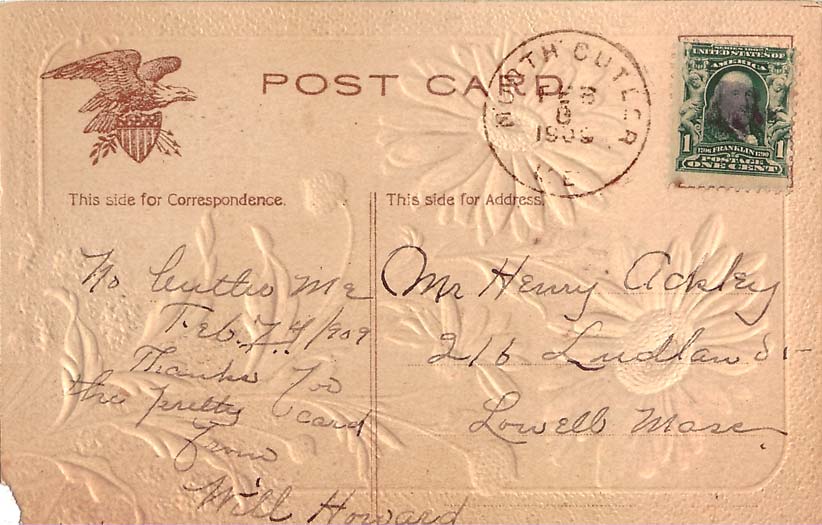 POST CARD
NORTH CUTLER
FEB
1909
ME
SERIES 1902
UNITED STATES OF
AMERICA
1 1
1706 FRANKLIN 1790
POSTAGE
ONE CENT
This side for Correspondence.
No Cutler Me
Feb. 7th/1909
Thanks for
the pretty card
from
Will Howard
This side for Address.
Mr Henry Ackley
216 Ludlam St
Lowell Mass